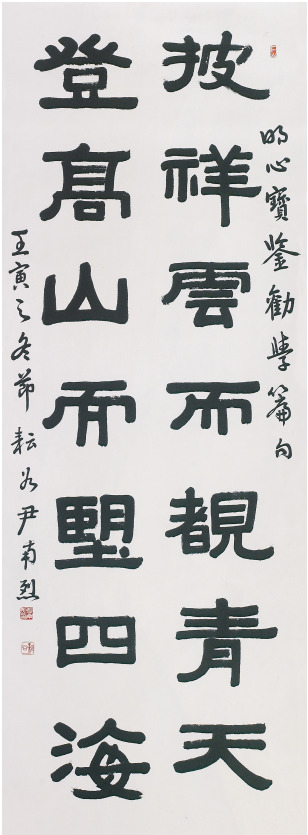 明心寶鑒勸學篇句
披祥雲而覩青天
登髙山而朢四海
壬寅之冬節 耘谷 尹南烈